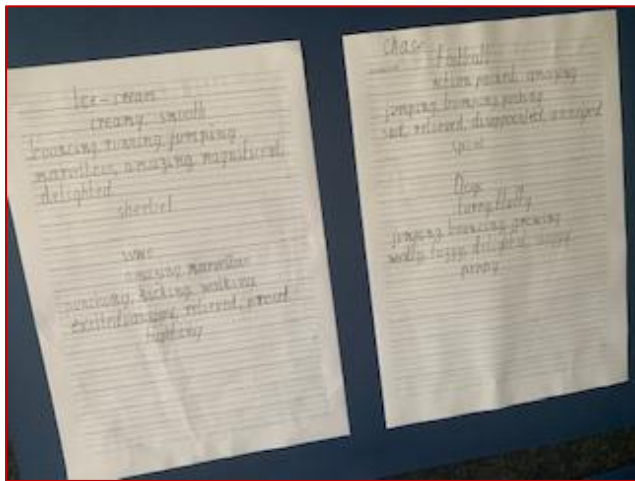 Ice-cream
creamy smooth
bouncing, running, jumping
marvellous, amazing, magnificent,
delighted
sherbet
WWE
amazing, marvellous
punching, kicking, walking
excited, relieved, proud
fighting
Chas
Football
action packed, amazing
jumping, bumping,
sad, relieved, disappointed, annoyed
sport
Dogs
furry, fluffy
jumping, bouncing, growing
delighted, happy
puppy